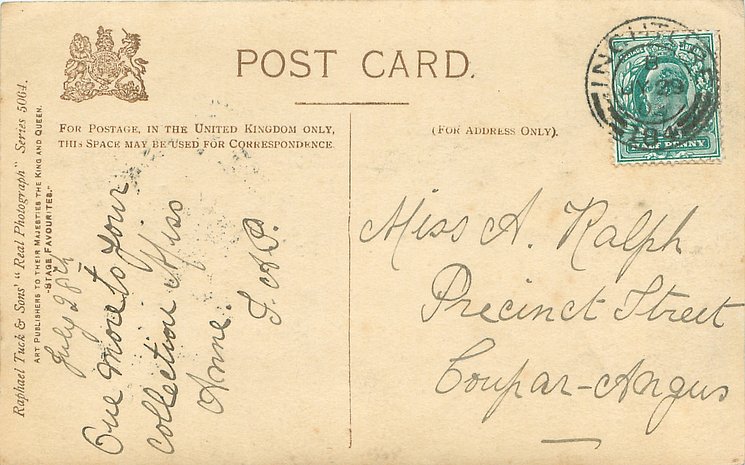 POST CARD.
FOR POSTAGE, IN THE UNITED KINGDOM ONLY,
THIS SPACE MAY BE USED FOR CORRESPONDENCE
(FOR ADDRESS ONLY).
Raphael Tuck & Sons' "Real Photograph" Series 5064.
ART PUBLISHERS TO THEIR MAJESTIES THE KING AND QUEEN.
"STAGE FAVOURITES."
July 28th
One more to your
collection Miss
Anne.
Miss A. Ralph
Precinct Street
Coupar-Angus
HALF PENNY
04